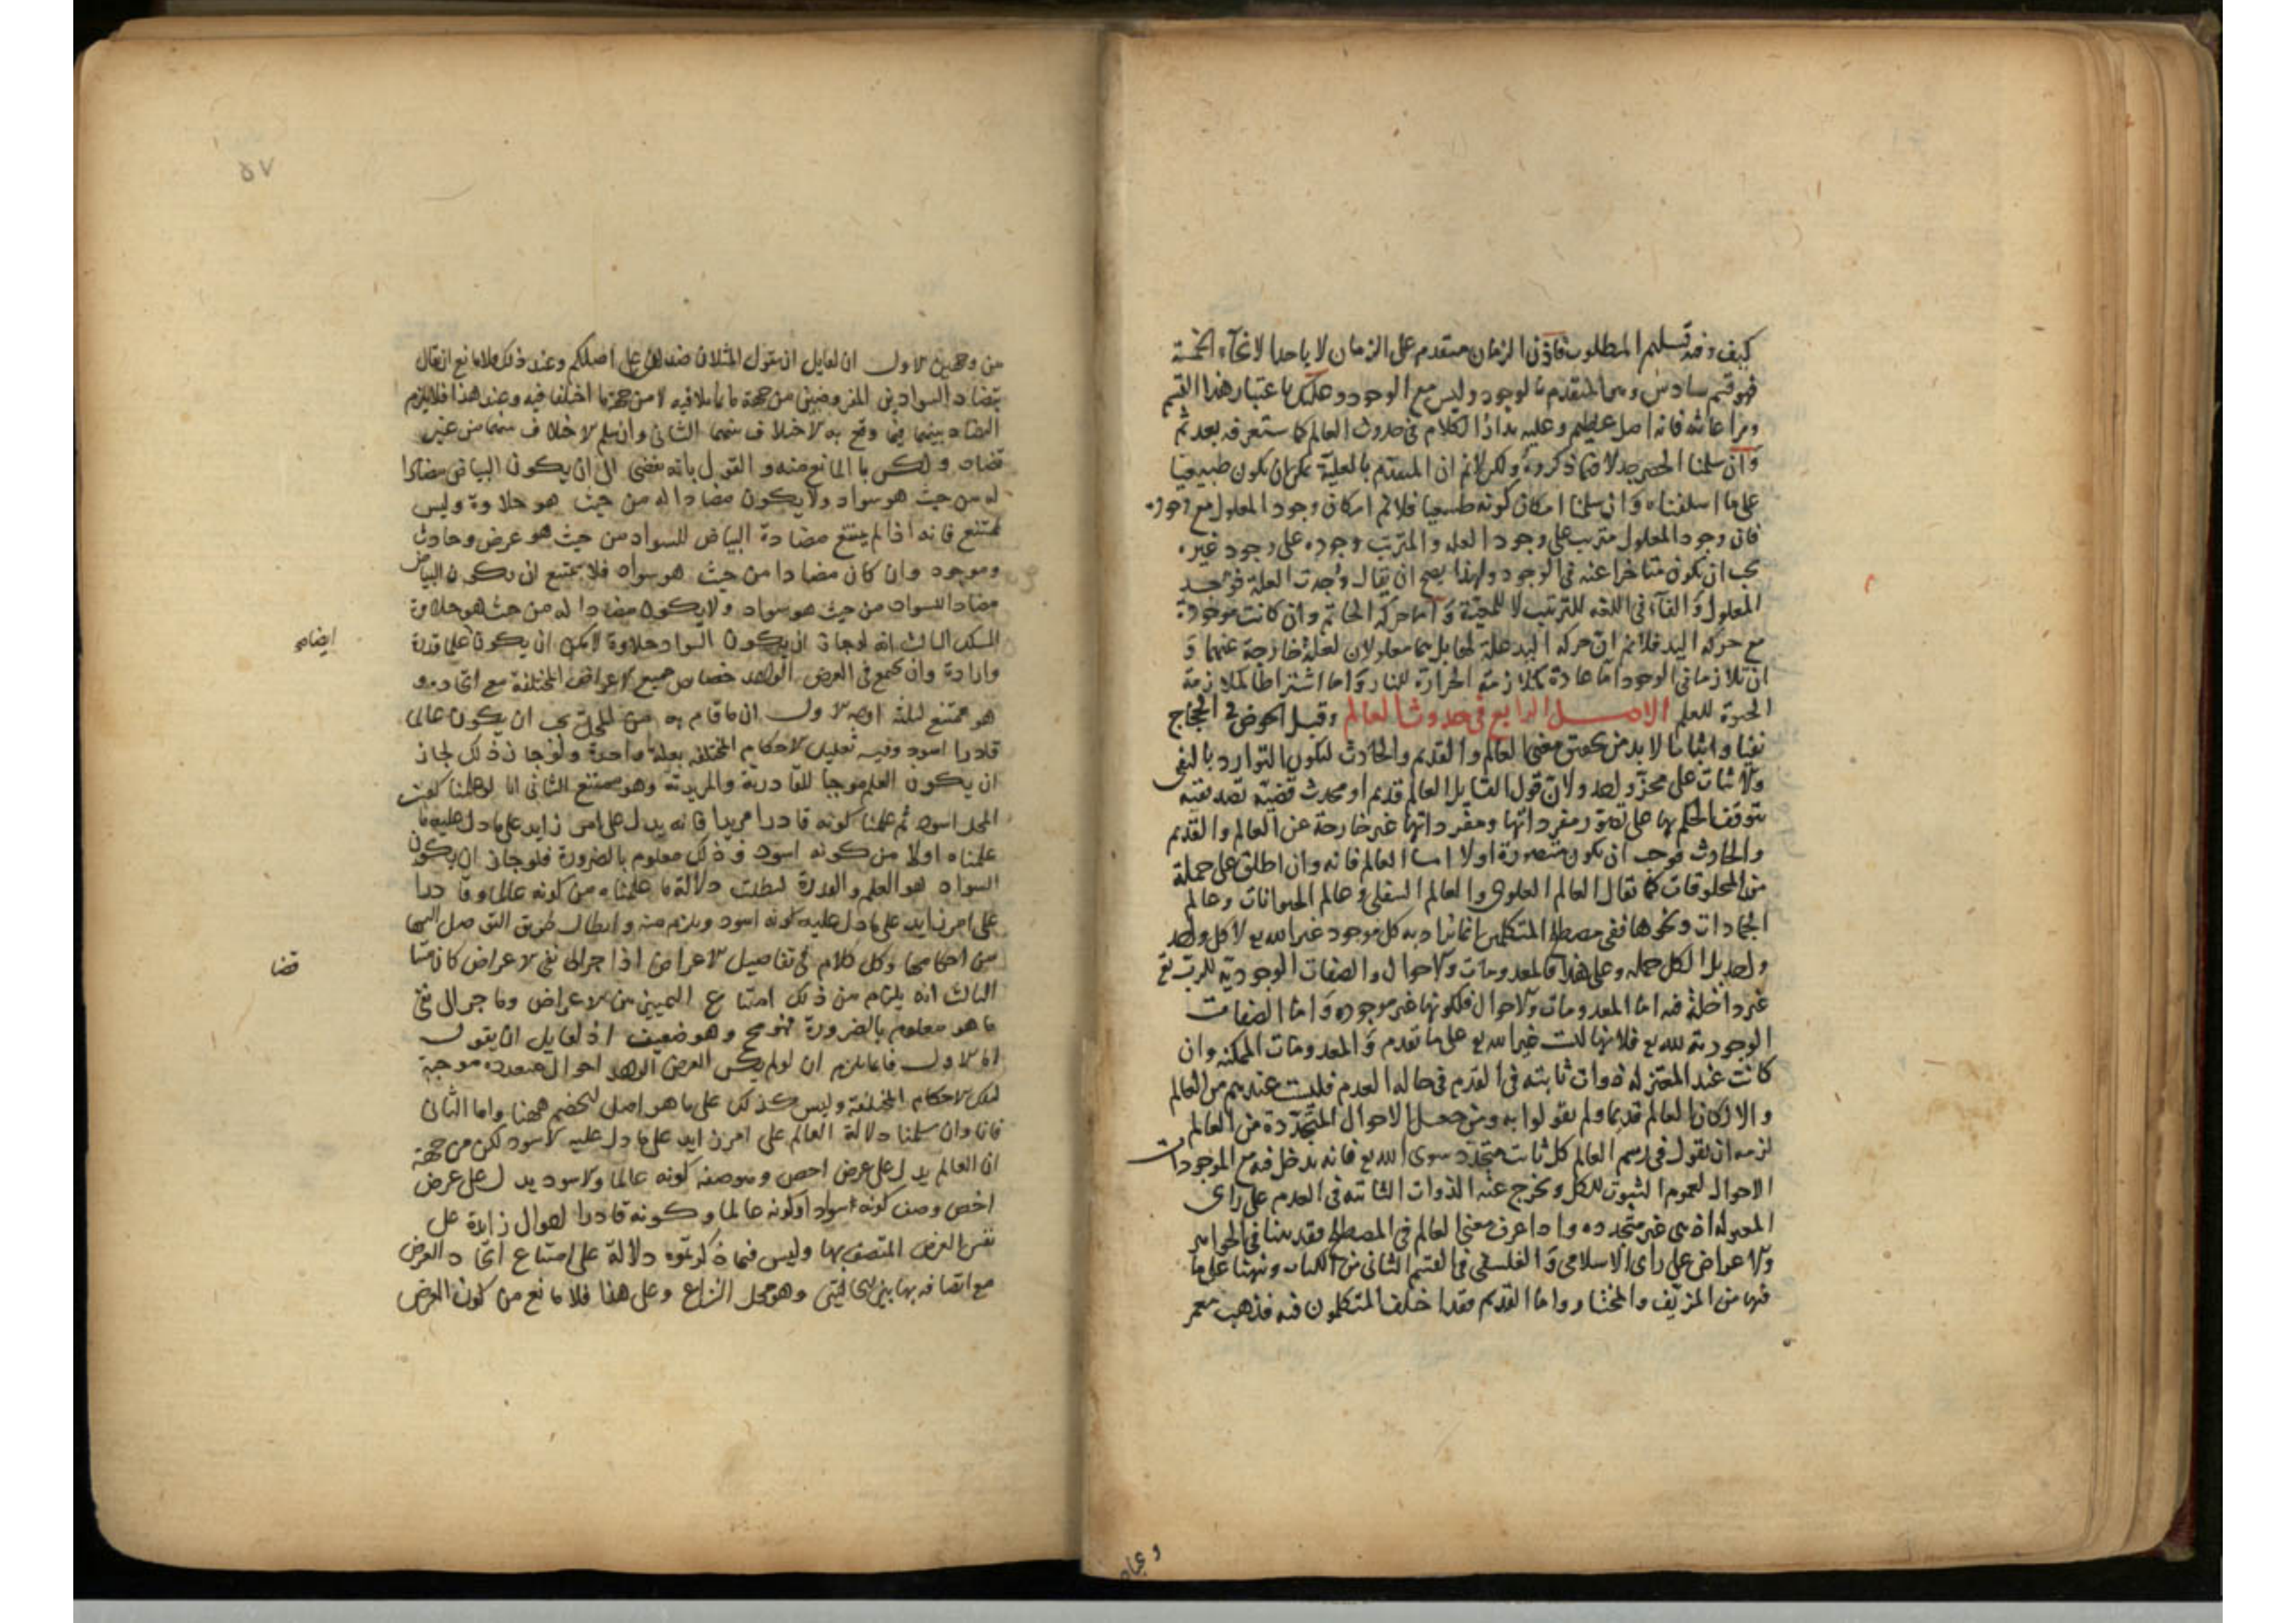 كيف وفيه تسليم المطلوب فاذن الزمان متقدم على الزمان لا باحد الانحاء الخمسة
فهو قسم سادس وهو المتقدم بالوجود وليس مع الوجود وعليك باعتبار هذا القسم
ومراعاته فانه اصل عظيم وعليه مدار الكلام في حدوث العالم كما ستعرفه بعد ثم
وان سلمنا الحصر جدلا فيما ذكروه ولكن لانم ان المتقدم بالعلية يمكن ان يكون طبيعيا
على ما اسلفناه وان سلمنا امكان كونه طبيعيا فلانم امكان وجود المعلول مع وجوده
فان وجود المعلول مترتب على وجود العلة والمترتب وجوده على وجود غيره
يجب ان يكون متاخرا عنه في الوجود ولهذا يصح ان يقال وجدت العلة فوجد
المعلول والفاء في اللغه للترتيب لا للمعية واما حركة الخاتم وان كانت موجودة
مع حركة اليد فلانم ان حركة اليد علة لها بل هما معلولان لعلة خارجة عنهما و
ان تلازما في الوجود اما عادة كملازمة الحرارة للنار واما اشتراطا كملازمة
الحيوة للعلم الاصل الرابع في حدوث العالم وقبل الخوض في الحجاج
نفيا واثباتا لا بد من تحقيق معنى العالم والقديم والحادث ليكون التوارد بالنفي
والاثبات على محز واحد ولان قول القايل العالم قديم او محدث قضية تصديقية
يتوقف الحكم بها على تصور مفرداتها ومفرداتها غير خارجة عن العالم والقديم
والحادث فوجب ان يكون متصورة اولا اما العالم فانه وان اطلق على جملة
من المخلوقات كما يقال العالم العلوي والعالم السفلي وعالم الحيوانات وعالم
الجمادات ونحوها ففي مصطلح المتكلمين انما يراد به كل موجود غير الله تع لا كل واحد
واحد بل الكل جملة وعلى هذا فالمعدومات والاحوال والصفات الوجودية للرب تع
غير داخلة فيه اما المعدومات والاحوال فلكونها غير موجوده واما الصفات
الوجودية لله تع فلانها ليست غير الله تع على ما تقدم والمعدومات الممكنه وان
كانت عند المعتزله ذوات ثابته في القدم في حاله العدم فليست عندهم من العالم
والا لكان العالم قديما ولم يقولوا به ومن جعل الاحوال المتجددة من العالم
لزمه ان يقول في رسم العالم كل ثابت متجدد سوى الله تع فانه يدخل فيه مع الموجودات
الاحوال لعموم الثبوت للكل ويخرج عنه الذوات الثابته في العدم على راى
المعتزله اذ هي غير متجدده واذا عرف معنى العالم في المصطلح فقد بينا في الجواهر
والاعراض على راى الاسلامي والفلسفي في القسم الثاني من الكتاب ونبهنا على ما
فيها من المزيف والمختار واما القديم فقد اختلف المتكلمون فيه فذهب معمر
٥٧
من وجهين الاول ان لقايل ان يقول المثلان ضدان على اصلكم وعند ذلك فلا مانع ان يقال
بتضاد السوادين المفروضين من جهة ما تماثلا فيه لا من جهة ما اختلفا فيه وعند هذا فلا يلزم
التضاد بينهما فيما وقع به الاختلاف بينهما الثاني وان سلم الاختلاف بينهما من غير
تضاد ولكن ما المانع منه والقول بانه يفضي الى ان يكون البياض مضادا
له من حيث هو سواد ولا يكون مضادا له من حيث هو حلاوة وليس
بممتنع فانه اذا لم يمتنع مضادة البياض للسواد من حيث هو عرض وحادث
وموجود وان كان مضادا من حيث هو سواد فلا يمتنع ان يكون البياض
مضادا للسواد من حيث هو سواد ولا يكون مضادا له من حيث هو حلاوة
المسلك الثالث انه لو جاز ان يكون السواد حلاوة لامكن ان يكون علما قدرة
وارادة وان يجتمع في العرض الواحد خصايص جميع الاعراض المختلفة مع اتحاده و
هو ممتنع لثلثة اوجه الاول ان ما قام به من المحل يجب ان يكون عالما
قادرا اسود وفيه تعليل الاحكام المختلفه بعلة واحدة ولو جاز ذلك لجاز
ان يكون العلم موجبا للقادرية والمريدية وهو ممتنع الثاني انا لو علمنا كون
المحل اسود ثم علمنا كونه قادرا مريدا فانه يدل على امر زايد على ما دل عليه ما
علمناه اولا من كونه اسود وذلك معلوم بالضرورة فلو جاز ان يكون
السواد هو العلم والقدرة لبطلت دلالة ما علمناه من كونه عالما وقادرا
على امر زايد على ما دل عليه كونه اسود ويلزم منه ابطال طريق التوصل اليها
من احكامها وكل كلام في تفاصيل الاعراض اذا جر الى نفي الاعراض كان متنا
الثالث انه يلزم من ذلك امتناع التمييز بين الاعراض وما جر الى نفي
ما هو معلوم بالضرورة فهو مح وهو ضعيف اذ لقايل ان يقول
اما الاول فانما يلزم ان لو لم يكن العرض الواحد احوال متعدده موجبة
لتلك الاحكام المختلفة وليس كذلك على ما هو اصل الخصم ههنا واما الثاني
فانا وان سلمنا دلالة العالم على امر زايد على ما دل عليه الاسود لكن من جهة
ان العالم يدل على عرض اخص وصفه كونه عالما والاسود يدل على عرض
اخص وصفه كونه اسواد او كونه عالما وكونه قادرا احوال زايدة على
نفس العرض المتصف بها وليس فيما ذكرتموه دلالة على امتناع اتحاد العرض
مع اتصافه بها بين الحالتين وهو محل النزاع وعلى هذا فلا مانع من كون العرض
ايضاح
قضا